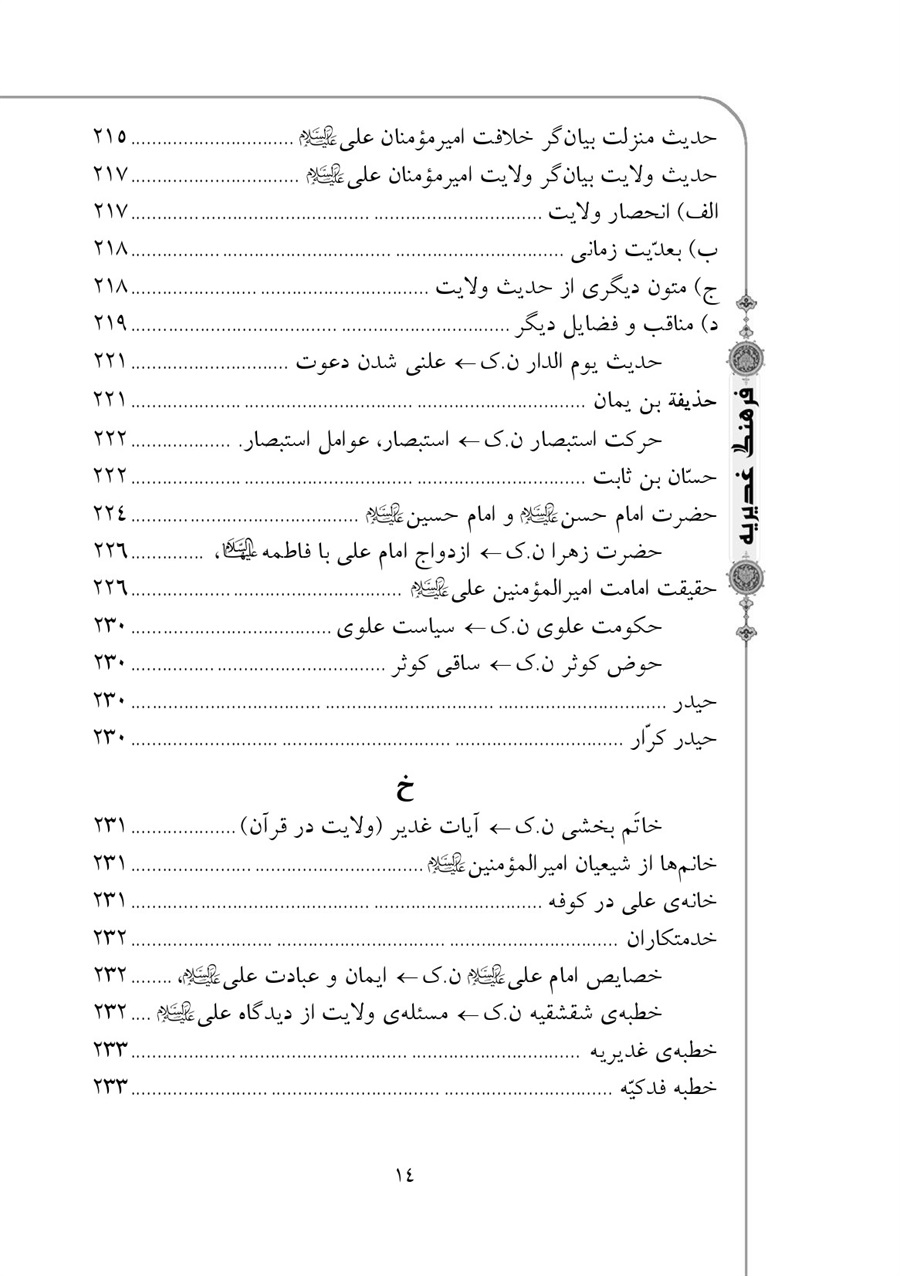 حدیث منزلت بیان‌گر خلافت امیرمؤمنان علی علیه‌السلام ................................ ۲۱۵
حدیث ولایت بیان‌گر ولایت امیرمؤمنان علی علیه‌السلام ................................ ۲۱۷
الف) انحصار ولایت ................................ ۲۱۷
ب) بعدیّت زمانی ................................ ۲۱۸
ج) متون دیگری از حدیث ولایت ................................ ۲۱۸
د) مناقب و فضایل دیگر ................................ ۲۱۹
حدیث یوم الدار ن.ک ← علنی شدن دعوت ................................ ۲۲۱
حذیفة بن یمان ................................ ۲۲۱
حرکت استبصار ن.ک ← استبصار، عوامل استبصار. ................... ۲۲۲
حسّان بن ثابت ................................ ۲۲۲
حضرت امام حسن علیه‌السلام و امام حسین علیه‌السلام ................................ ۲۲٤
حضرت زهرا ن.ک ← ازدواج امام علی با فاطمه علیهاالسلام، .............. ۲۲٦
حقیقت امامت امیرالمؤمنین علی علیه‌السلام ................................ ۲۲٦
حکومت علوی ن.ک ← سیاست علوی ................................ ۲۳۰
حوض کوثر ن.ک ← ساقی کوثر ................................ ۲۳۰
حیدر ................................ ۲۳۰
حیدر کرّار ................................ ۲۳۰
خ
خاتَم بخشی ن.ک ← آیات غدیر (ولایت در قرآن) .................... ۲۳۱
خانم‌ها از شیعیان امیرالمؤمنین علیه‌السلام ................................ ۲۳۱
خانه‌ی علی در کوفه ................................ ۲۳۱
خدمتکاران ................................ ۲۳۲
خصایص امام علی علیه‌السلام ن.ک ← ایمان و عبادت علی علیه‌السلام، ........ ۲۳۲
خطبه‌ی شقشقیه ن.ک ← مسئله‌ی ولایت از دیدگاه علی علیه‌السلام .... ۲۳۲
خطبه‌ی غدیریه ................................ ۲۳۳
خطبه فدکیّه ................................ ۲۳۳
فرهنگ غدیریه
۱٤